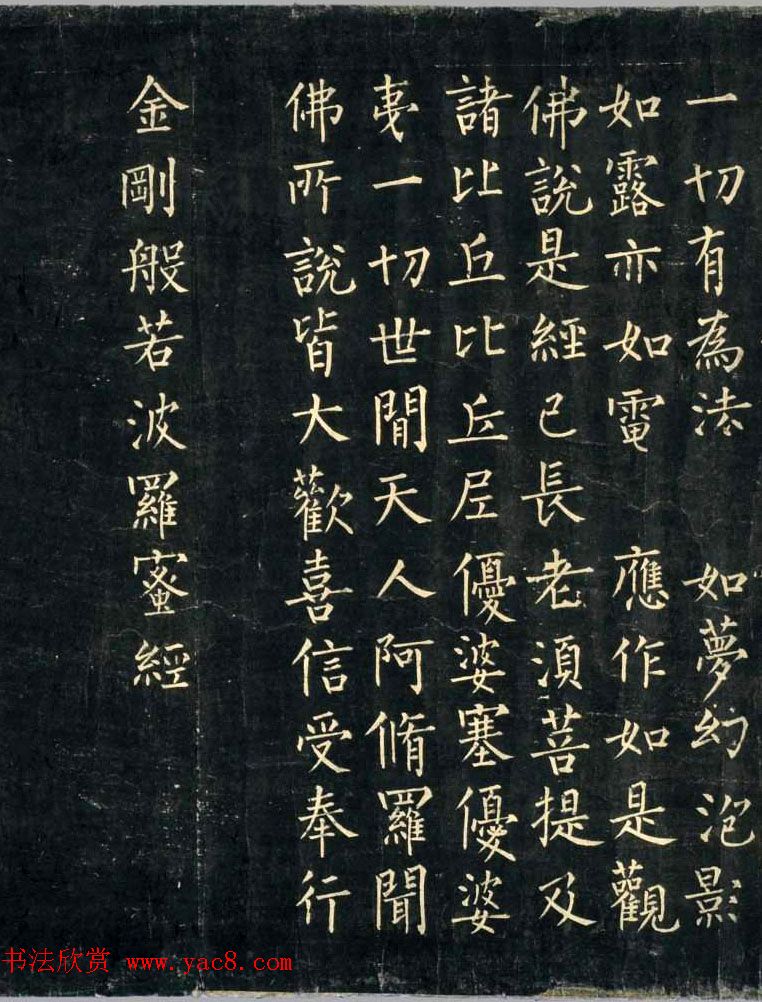 一切有為法　如夢幻泡影
如露亦如電　應作如是觀
佛說是經已長老須菩提及
諸比丘比丘尼優婆塞優婆
夷一切世間天人阿脩羅聞
佛所說皆大歡喜信受奉行
金剛般若波羅蜜經
书法欣赏 www.yac8.com